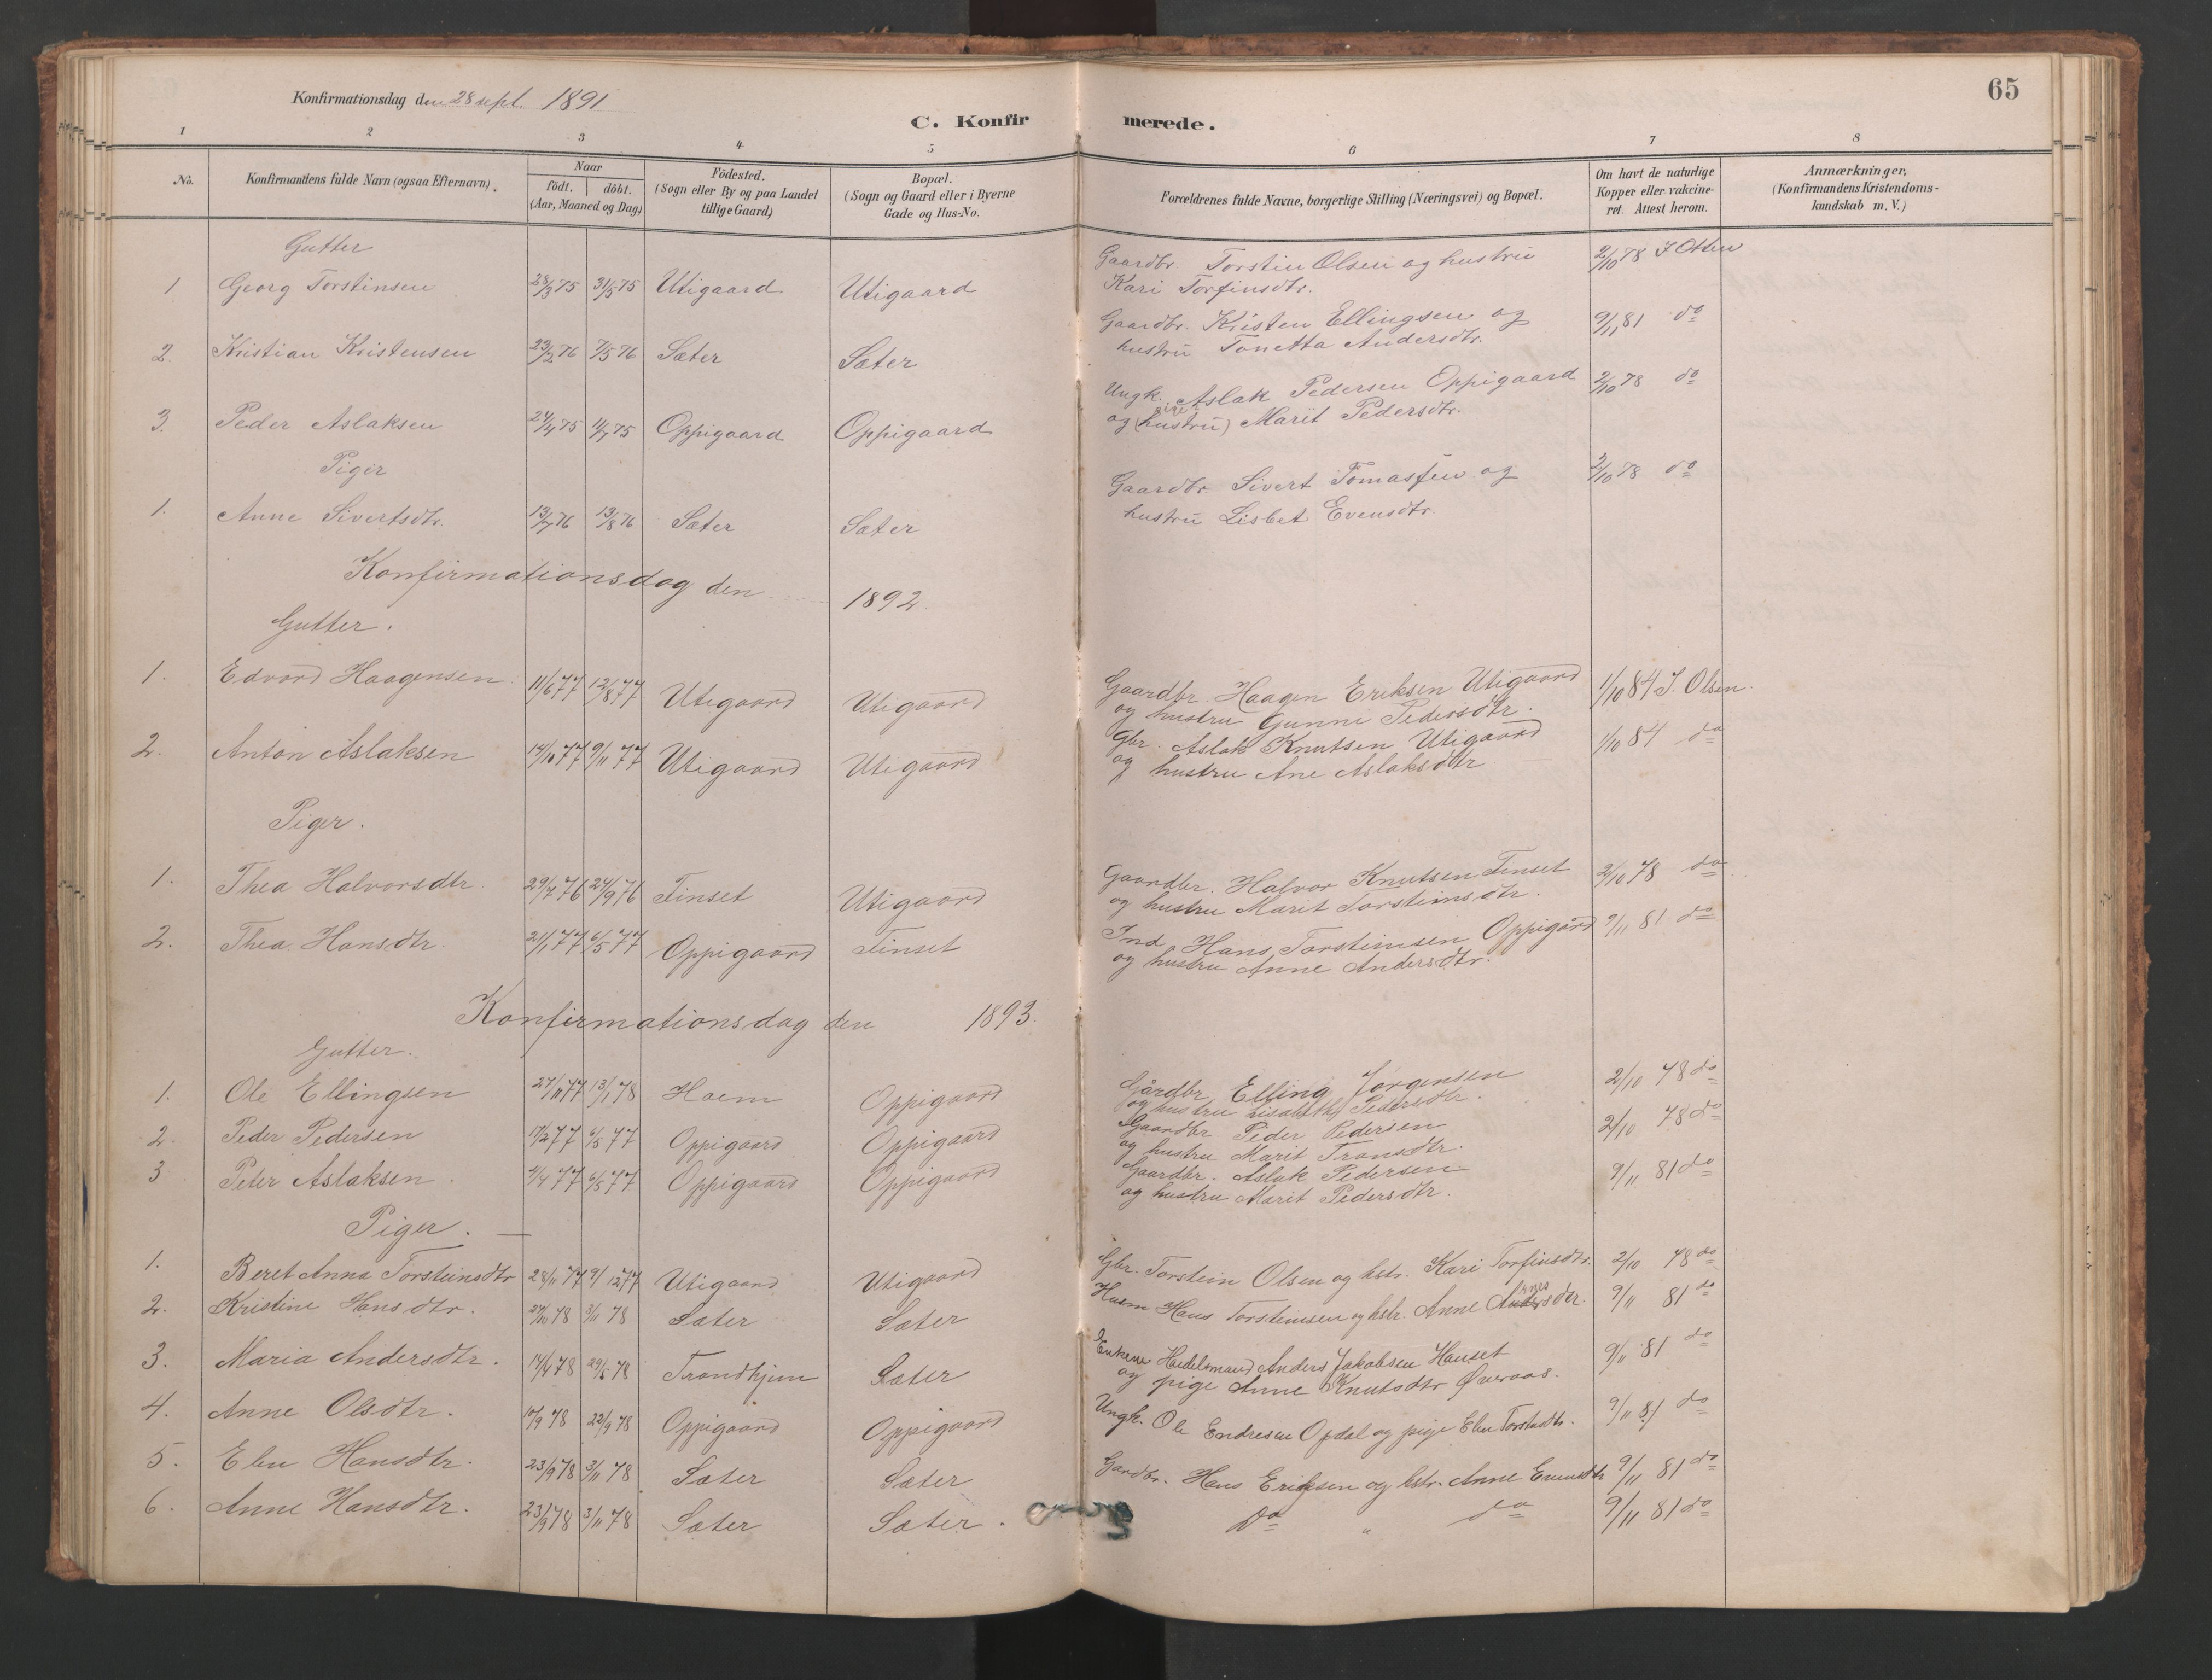 Konfirmationsdag den 28 sept. 1891
65
C. Konfirmerede.
1 2 3 4 5 6 7 8
No. Konfirmandens fulde Navn (ogsaa Efternavn). Naar födt. döbt. (Aar, Maaned og Dag) Födested. (Sogn eller By og paa Landet tillige Gaard) Bopæl. (Sogn og Gaard eller i Byerne Gade og Hus-No. Forældrenes fulde Navne, borgerlige Stilling (Næringsvei) og Bopæl. Om havt de naturlige Kopper eller vakcineret. Attest herom. Anmærkninger, (Konfirmandens Kristendomskundskab m. V.)
Gutter
1 Georg Torstinsen 28/3 75 31/5 75 Utigaard Utigaard Gaardbr. Torstin Olsen og hustru 2/10 78 J Olsen
Kari Torfinsdtr.
2. Kristian Kristensen 23/2 76 7/5 76 Sæter Sæter Gaardbr. Kristen Ellingsen og 9/11 81 do
hustru Tonetta Andersdtr.
3. Peder Aslaksen 24/4 75 11/7 75 Oppigaard Oppigaard Ungk. Aslak Pedersen Oppigaard 2/10 78 do
og (hustru) pige Marit Pedersdtr.
Piger
1. Anne Sivertsdtr. 13/7 76 13/8 76 Sæter Sæter Gaardbr Sivert Tomassen og 2/10 78 do
hustru Lisbet Evensdtr.
Konfirmationsdag den 1892.
Gutter.
1. Edvard Haagensen 11/6 77 12/8 77 Utigaard Utigaard Gaardbr. Haagen Eriksen Utigaard 1/10 84 J. Olsen.
og hustru Gunne Pedersdtr.
2. Anton Aslaksen 14/10 77 9/11 77 Utigaard Utigaard Gbr. Aslak Knutsen Utigaard 1/10 84 do
og hustru Ane Aslaksdtr
Piger.
1. Thea Halvorsdtr. 29/7 76 24/9 76 Finset Utigaard Gaardbr. Halvor Knutsen Finset 2/10 78 do
og hustru Marit Torsteinsdtr.
2. Thea Hansdtr. 2/1 77 6/5 77 Oppigaard Finset Ind. Hans Torsteinsen Oppigård 9/11 81 do
og hustru Anne Andersdtr.
Konfirmationsdag den 1893.
Gutter.
1. Ole Ellingsen 27/11 77 13/1 78 Hoem Oppigaard Gårdbr Elling Jørgensen 2/10 78 do
og hustru Lisabeth Pedersdtr.
2. Peder Pedersen 17/2 77 6/5 77 Oppigaard Oppigaard Gaardbr Peder Pedersen 2/10 78 do
og hustru Marit Transdtr.
3 Peter Aslaksen. 4/4 77 6/5 77 Oppigaard Oppigaard Gaardbr. Aslak Pedersen 9/11 81 do
og hustru Marit Pedersdtr.
Piger.
1. Beret Anna Torsteinsdtr 28/11 77 9/12 77 Utigaard Utigaard Gbr. Torstein Olsen og hstr. Kari Torfinsdtr. 2/10 78 do
2. Kristine Hansdtr. 27/10 78 3/11 78 Sæter Sæter Husm Hans Torsteinsen og hstr. Anne Andersdtr. 9/11 81 do
3. Maria Andersdtr. 14/4 78 29/5 78 Trondhjem Sæter Enkem Handelsmand Anders Jakobsen Hauset 9/11 81 do
og pige Anne Knutsdtr Øveraas.
4. Anne Olsdtr. 10/9 78 22/9 78 Oppigaard Oppigaard Ungk. Ole Endresen Opdal og pige Elen Torstsdtr. 9/11 81 do
5. Elen Hansdtr. 23/9 78 3/11 78 Sæter Sæter Gardbr. Hans Eriksen og hstr. Anne Evensdtr 9/11 81 do
6. Anne Hansdtr. 23/9 78 3/11 78 Sæter Sæter. Do " do 9/11 81 do